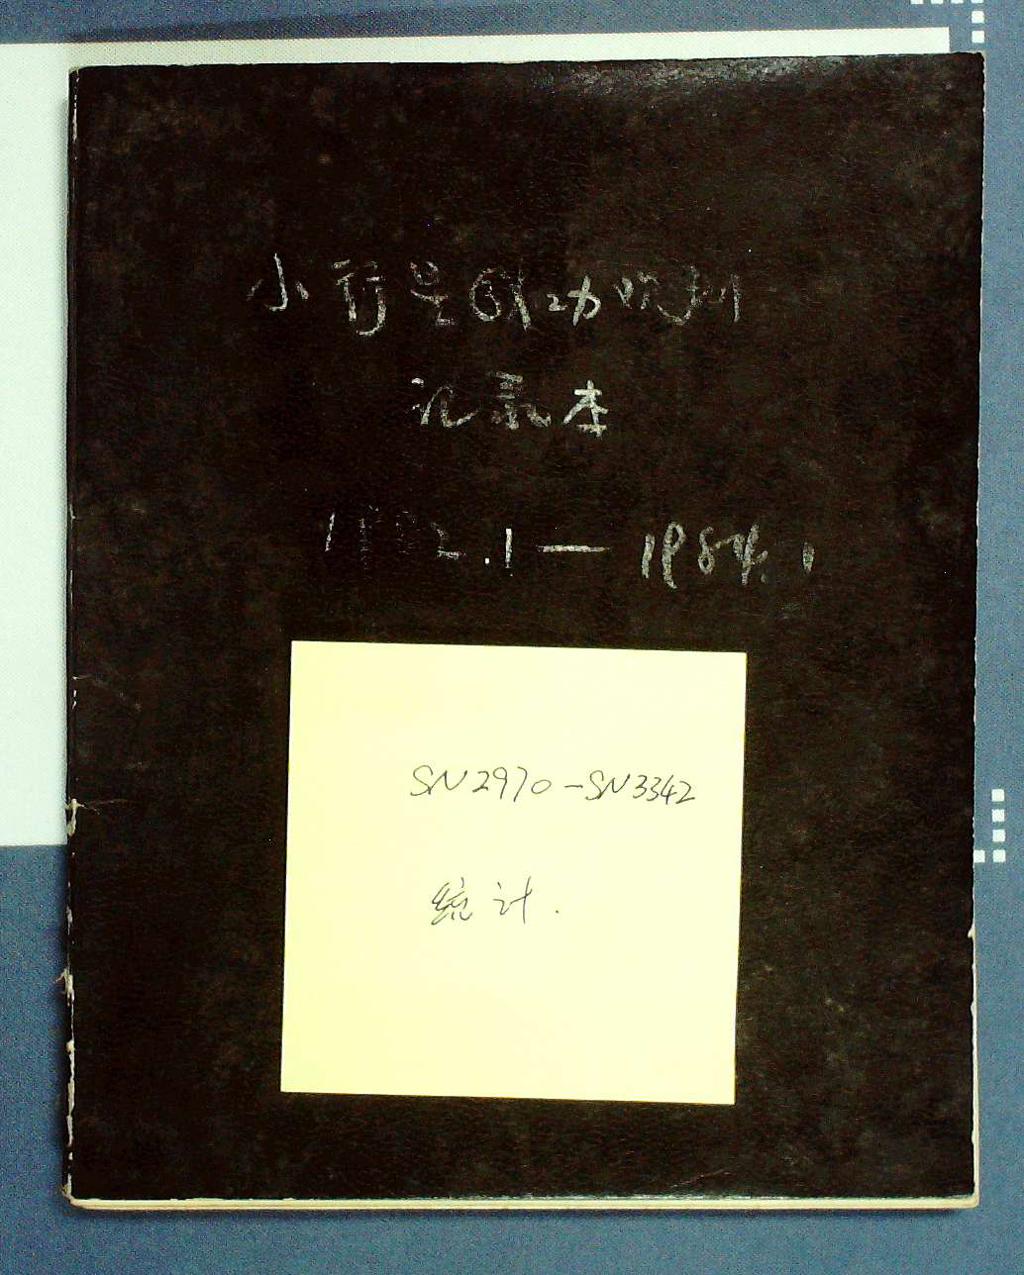 小行星成功观测
记录本
1982.1—1984.1
SN2970-SN3342
统计.